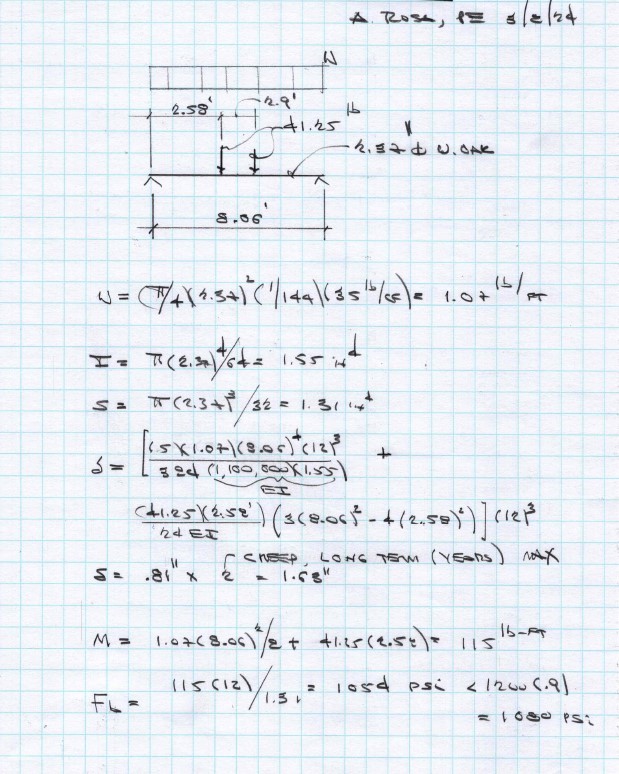 A. ROSA, PE 3/8/24
W
2.58' 2.9'
41.25 lb
2.37" ϕ W. OAK
8.06'
W = (π/4)(2.37)²(1/144)(35 lb/CF) = 1.07 lb/FT
I = π(2.37)⁴/64 = 1.55 in⁴
S = π(2.37)³/32 = 1.31 in⁴
δ = [(5)(1.07)(8.06)⁴(12)³ / 384 (1,100,000)(1.55) +
EI
(41.25)(2.58')/24 EI (3(8.06)² - 4(2.58)²)] (12)³
CREEP, LONG TERM (YEARS) MAX
δ = .81" x 2 = 1.63"
M = 1.07(8.06)²/8 + 41.25(2.58) = 115 lb-FT
Fb = 115(12)/1.31 = 1054 psi < 1200(.9)
= 1080 PSi